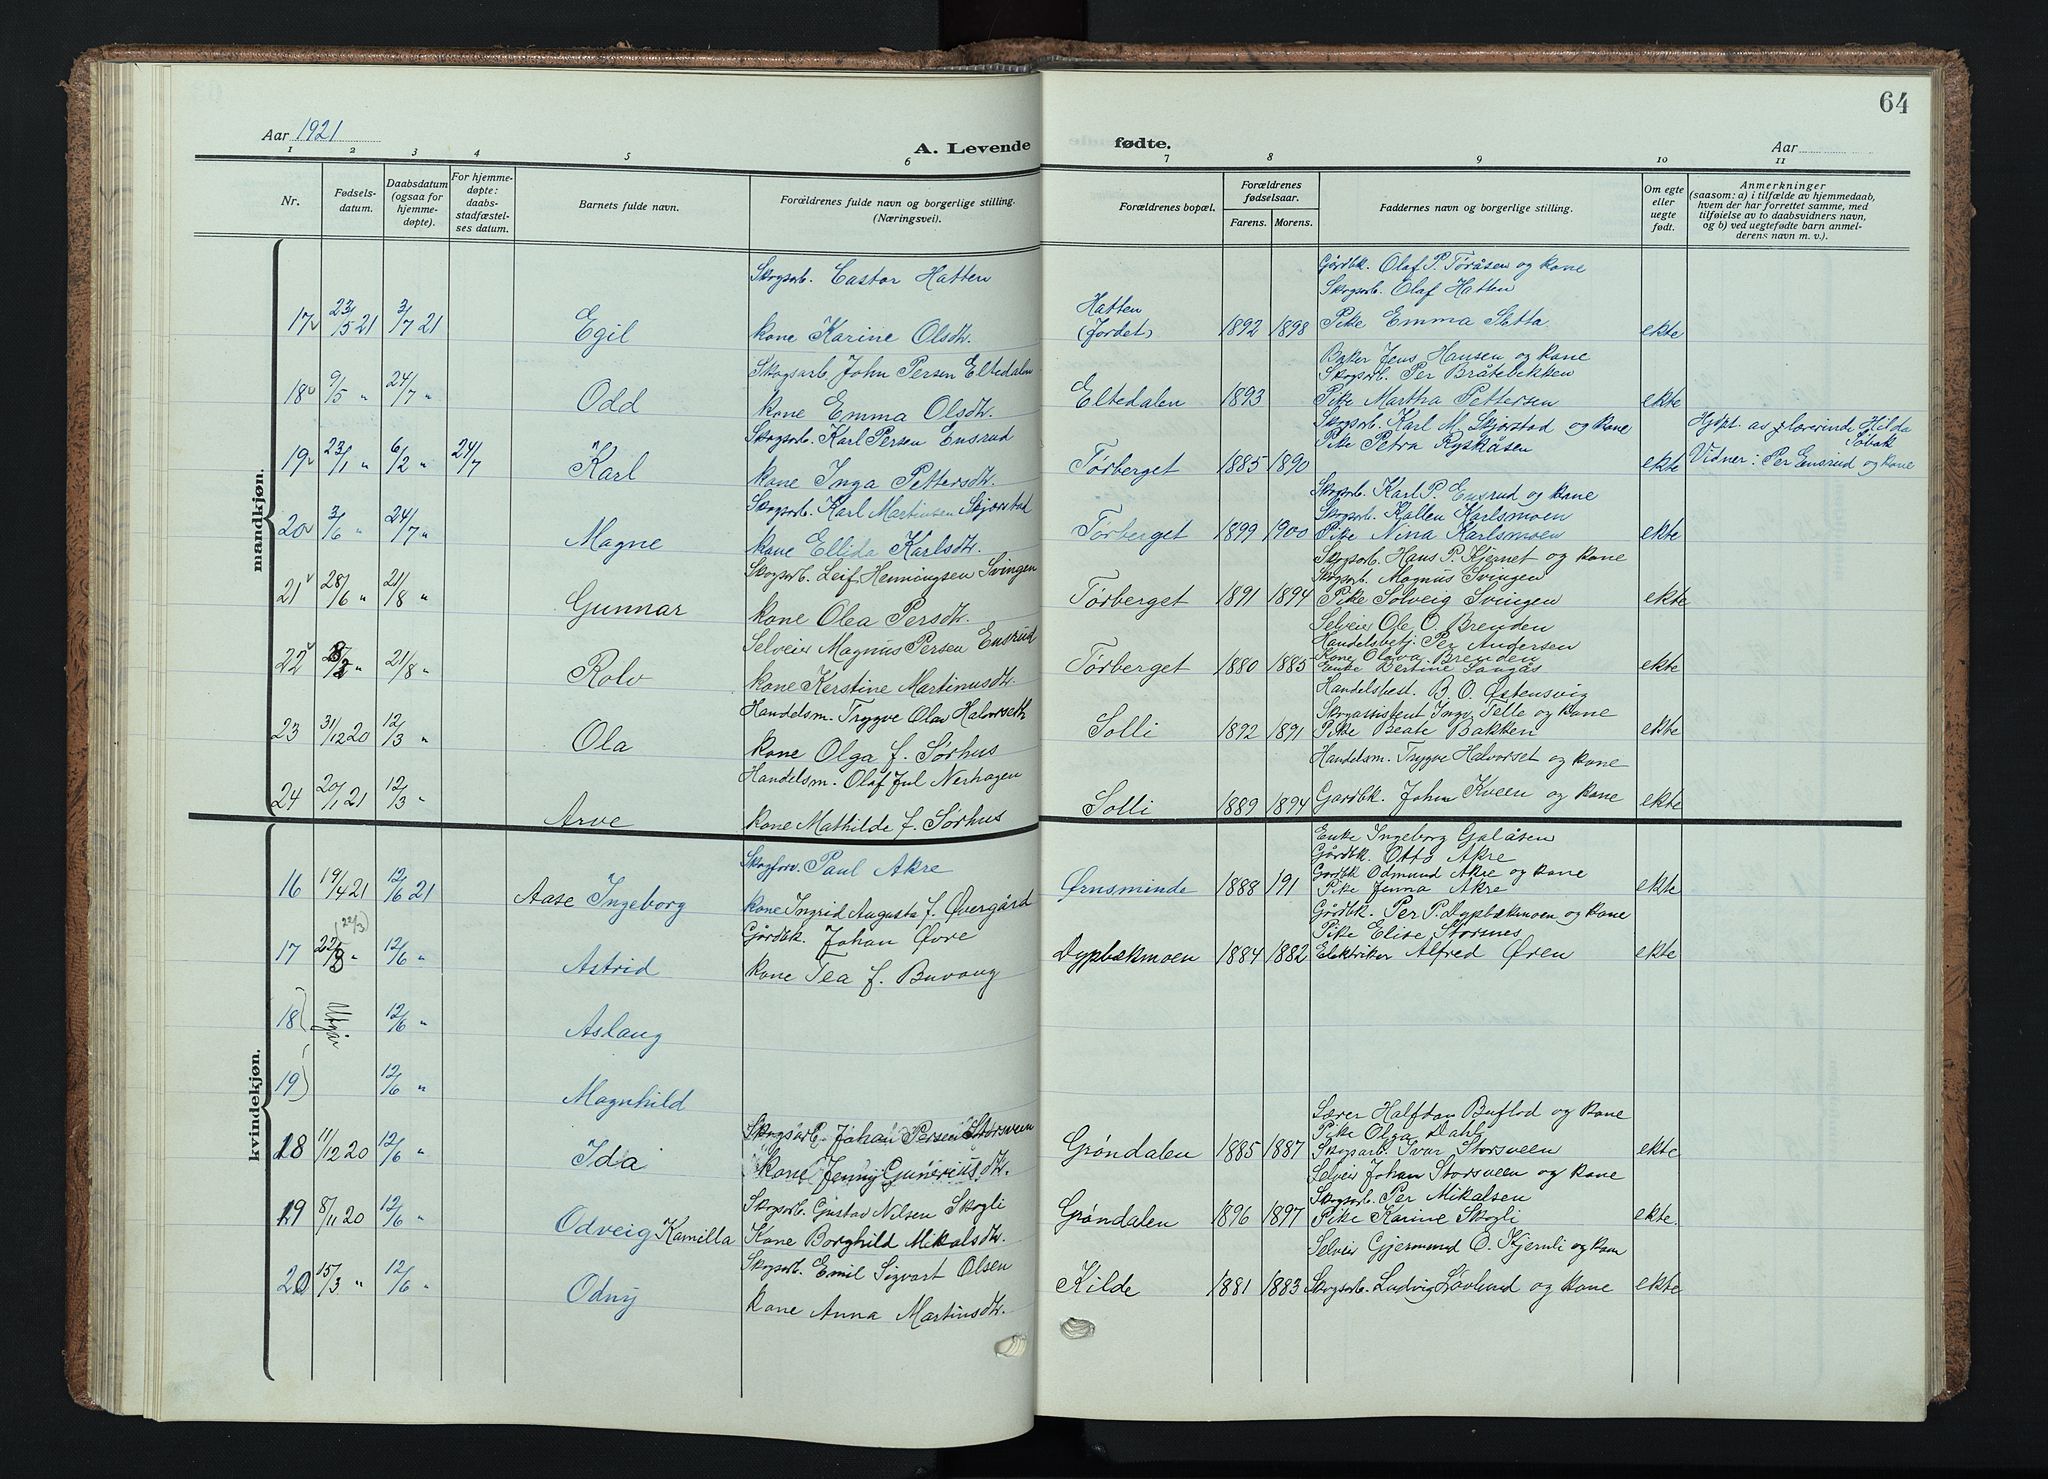 64
Aar 1921
A. Levende fødte.
Aar
1 2 3 4 5 6 7 8 9 10 11
Nr.
Fødsels-
datum.
Daabsdatum
(ogsaa for
hjemme-
døpte).
For hjemme-
døpte:
daabs-
stadfæstel-
ses datum.
Barnets fulde navn.
Forældrenes fulde navn og borgerlige stilling.
(Næringsvei).
Forældrenes bopæl.
Forældrenes
fødselsaar.
Farens. Morens.
Faddernes navn og borgerlige stilling.
Om egte
eller
uegte
født.
Anmerkninger
(saasom: a) i tilfælde av hjemmedaab,
hvem der har forrettet samme, med
tilføielse av to daabsvidners navn,
og b) ved uegtefødte barn anmel-
derens navn m. v.).
mandkjøn.
Skogsarb. Castor Hatten
Gårdbk. Olaf P. Tøråsen og kone
Skogsarb. Olaf Hatten
17 23/5 21 3/7 21 Egil kone Karine Olsdtr. Hatten (Jordet) 1892 1898 Pike Emma Sætta ekte
Skogsarb. John Persen Eltedalen
Baker Jens Hansen og kone
Skogsarb. Per Bråtebekken
18 9/5 " 24/7 " Odd kone Emma Olsdtr. Eltedalen 1893 Pike Martha Pettersen ekte
Skogsarb. Karl Persen Ensrud
Skogsarb. Karl M. Skjørstad og kone
Hjdpt. av lærerinde Hilda Tobak
Pike Petra Ryskåsen
19 23/1 " 6/2 " 24/7 Karl kone Inga Pettersdtr. Tørberget 1885 1890 ekte Vidner: Per Ensrud og kone
Skogsarb. Karl Martinsen Skjørstad
Skogsarb. Karl P. Ensrud og kone
Skogsarb. Kallen Karlsmoen
20 3/6 " 24/7 " Magne kone Ellida Karlsdtr. Tørberget 1899 1900 Pike Nina Karlsmoen ekte
Skogsarb. Leif Henningsen Svingen
Skogsarb. Hans P. Kjernet og kone
Skogsarb. Magnus Svingen
21 28/6 " 21/8 " Gunnar kone Olea Persdtr. Tørberget 1891 1894 Pike Solveig Svingen ekte
Selveier Magnus Persen Ensrud
Selveier Ole O. Brenden
Handelsbetj. Per Andersen
Kone Olava Brenden
22 21/8 " Rolv kone Kerstine Martinusdtr. Tørberget 1880 1885 Enke Bertine Langås ekte
Handelsm. Trygve Olav Halvorseth
Handelsbest. B. O. Østensvig
Skogassistent Ingv. Telle og kone
23 31/12 20 12/3 " Ola kone Olga f. Sørhus Solli 1892 1891 Pike Beate Bakken ekte
Handelsm. Olaf Jul Nerhagen
Handelsm. Trygve Halvorset og kone
24 20/1 21 12/3 " Arve kone Mathilde f. Sørhus Solli 1889 1894 Gardbk. Johan Kveen og kone ekte
kvindekjøn.
Skogforv. Paul Akre
Enke Ingeborg Galåsen
Gårdbk. Otto Akre
Gardbk Odmund Akre og kone
16 19/4 21 12/6 21 Aase Ingeborg kone Ingrid Augusta f. Øvergård Ørnsminde 1888 191 Pike Jenna Akre ekte
(22/3)
Gårdbk. Johan Øvre
Gårdbk. Per P. Dypbækmoen og kone
Pike Elise Storsnes
17 22/3 " 12/6 " Astrid kone Tea f. Buvang Dypbækmoen 1884 1882 Elektriker Alfred Øren ekte
18 Utgjør 12/6 " Aslaug
19 12/6 " Magnhild
Skogsarb. Johan Persen Storsveen
Lærer Halfdan Buflod og kone
Pike Olga Dahl
18 11/12 20 12/6 " Ida kone Jenny Guneriusdtr. Grøndalen 1885 1887 Skogsarb. Ivar Storsveen ekte
Skogsarb. Gustav Nilsen Skogli
Selveier Johan Storsveen og kone
Skogsarb. Per Mikalsen
19 8/11 20 12/6 " Odveig Kamilla Kone Borghild Mikalsdtr. Grøndalen 1896 1897 Pike Karine Skogli ekte.
Skogsarb. Emil Sigvart Olsen
Selveier Gjermund O. Kjernli og kone
20 15/3 " 12/6 " Odny kone Anna Martinsdtr. Kilde 1881 1883 Skogsarb. Ludvig Løvlund og kone ekte